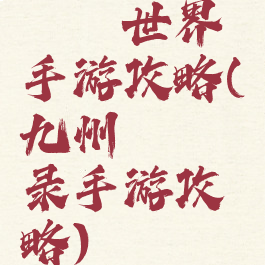 世界
手游攻略(
九州
录手游攻
略)